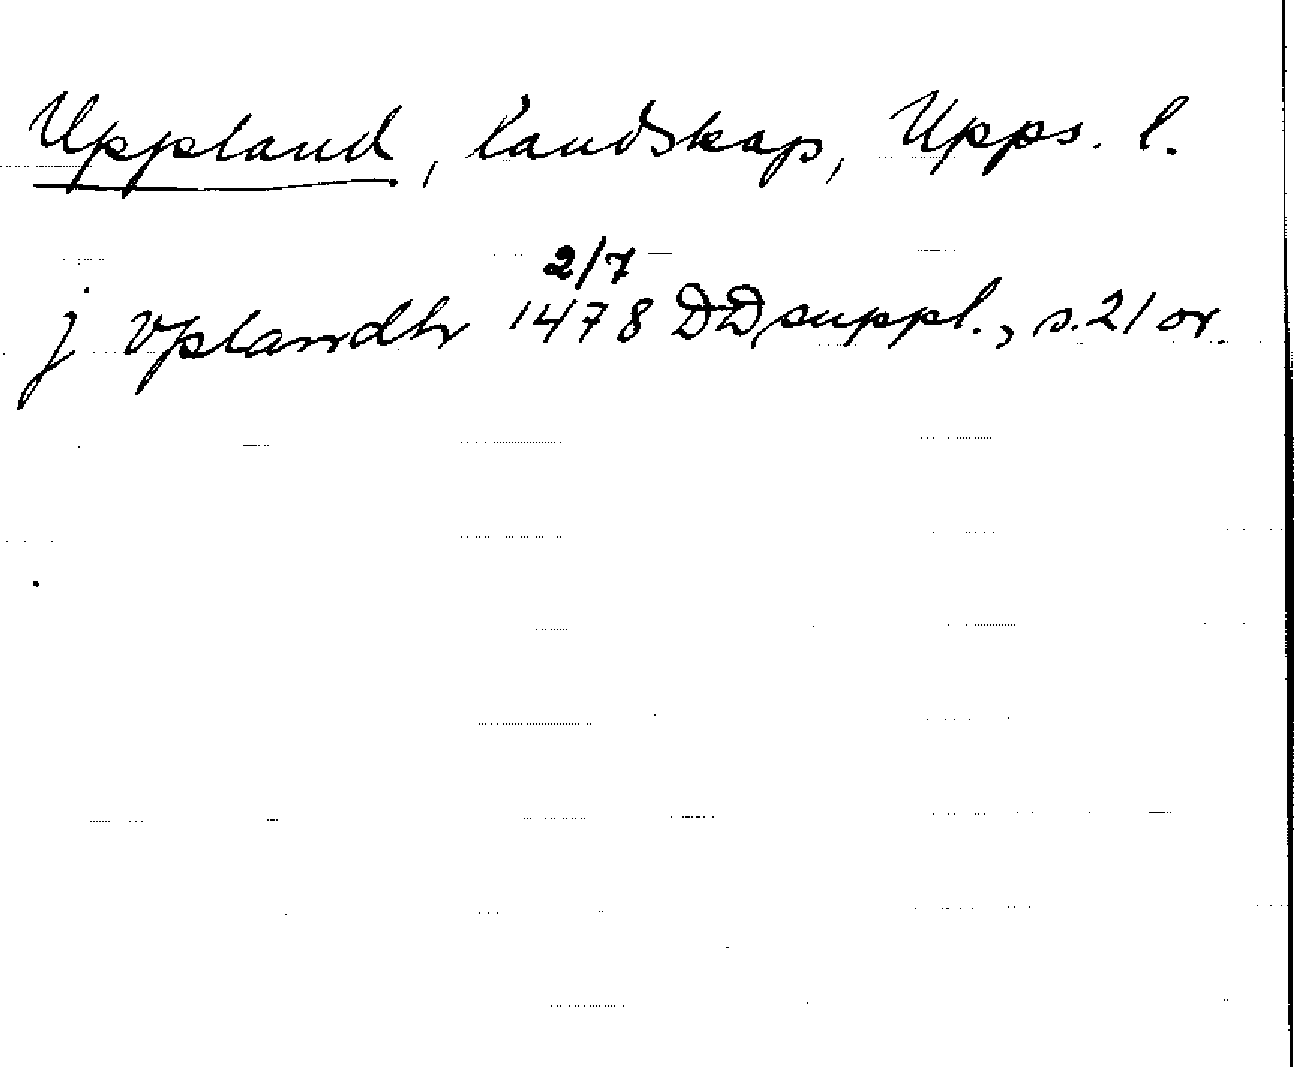 Uppland, landskap, Upps. l.
2/7
j Vplandh 1478 DD suppl., s. 21 or.